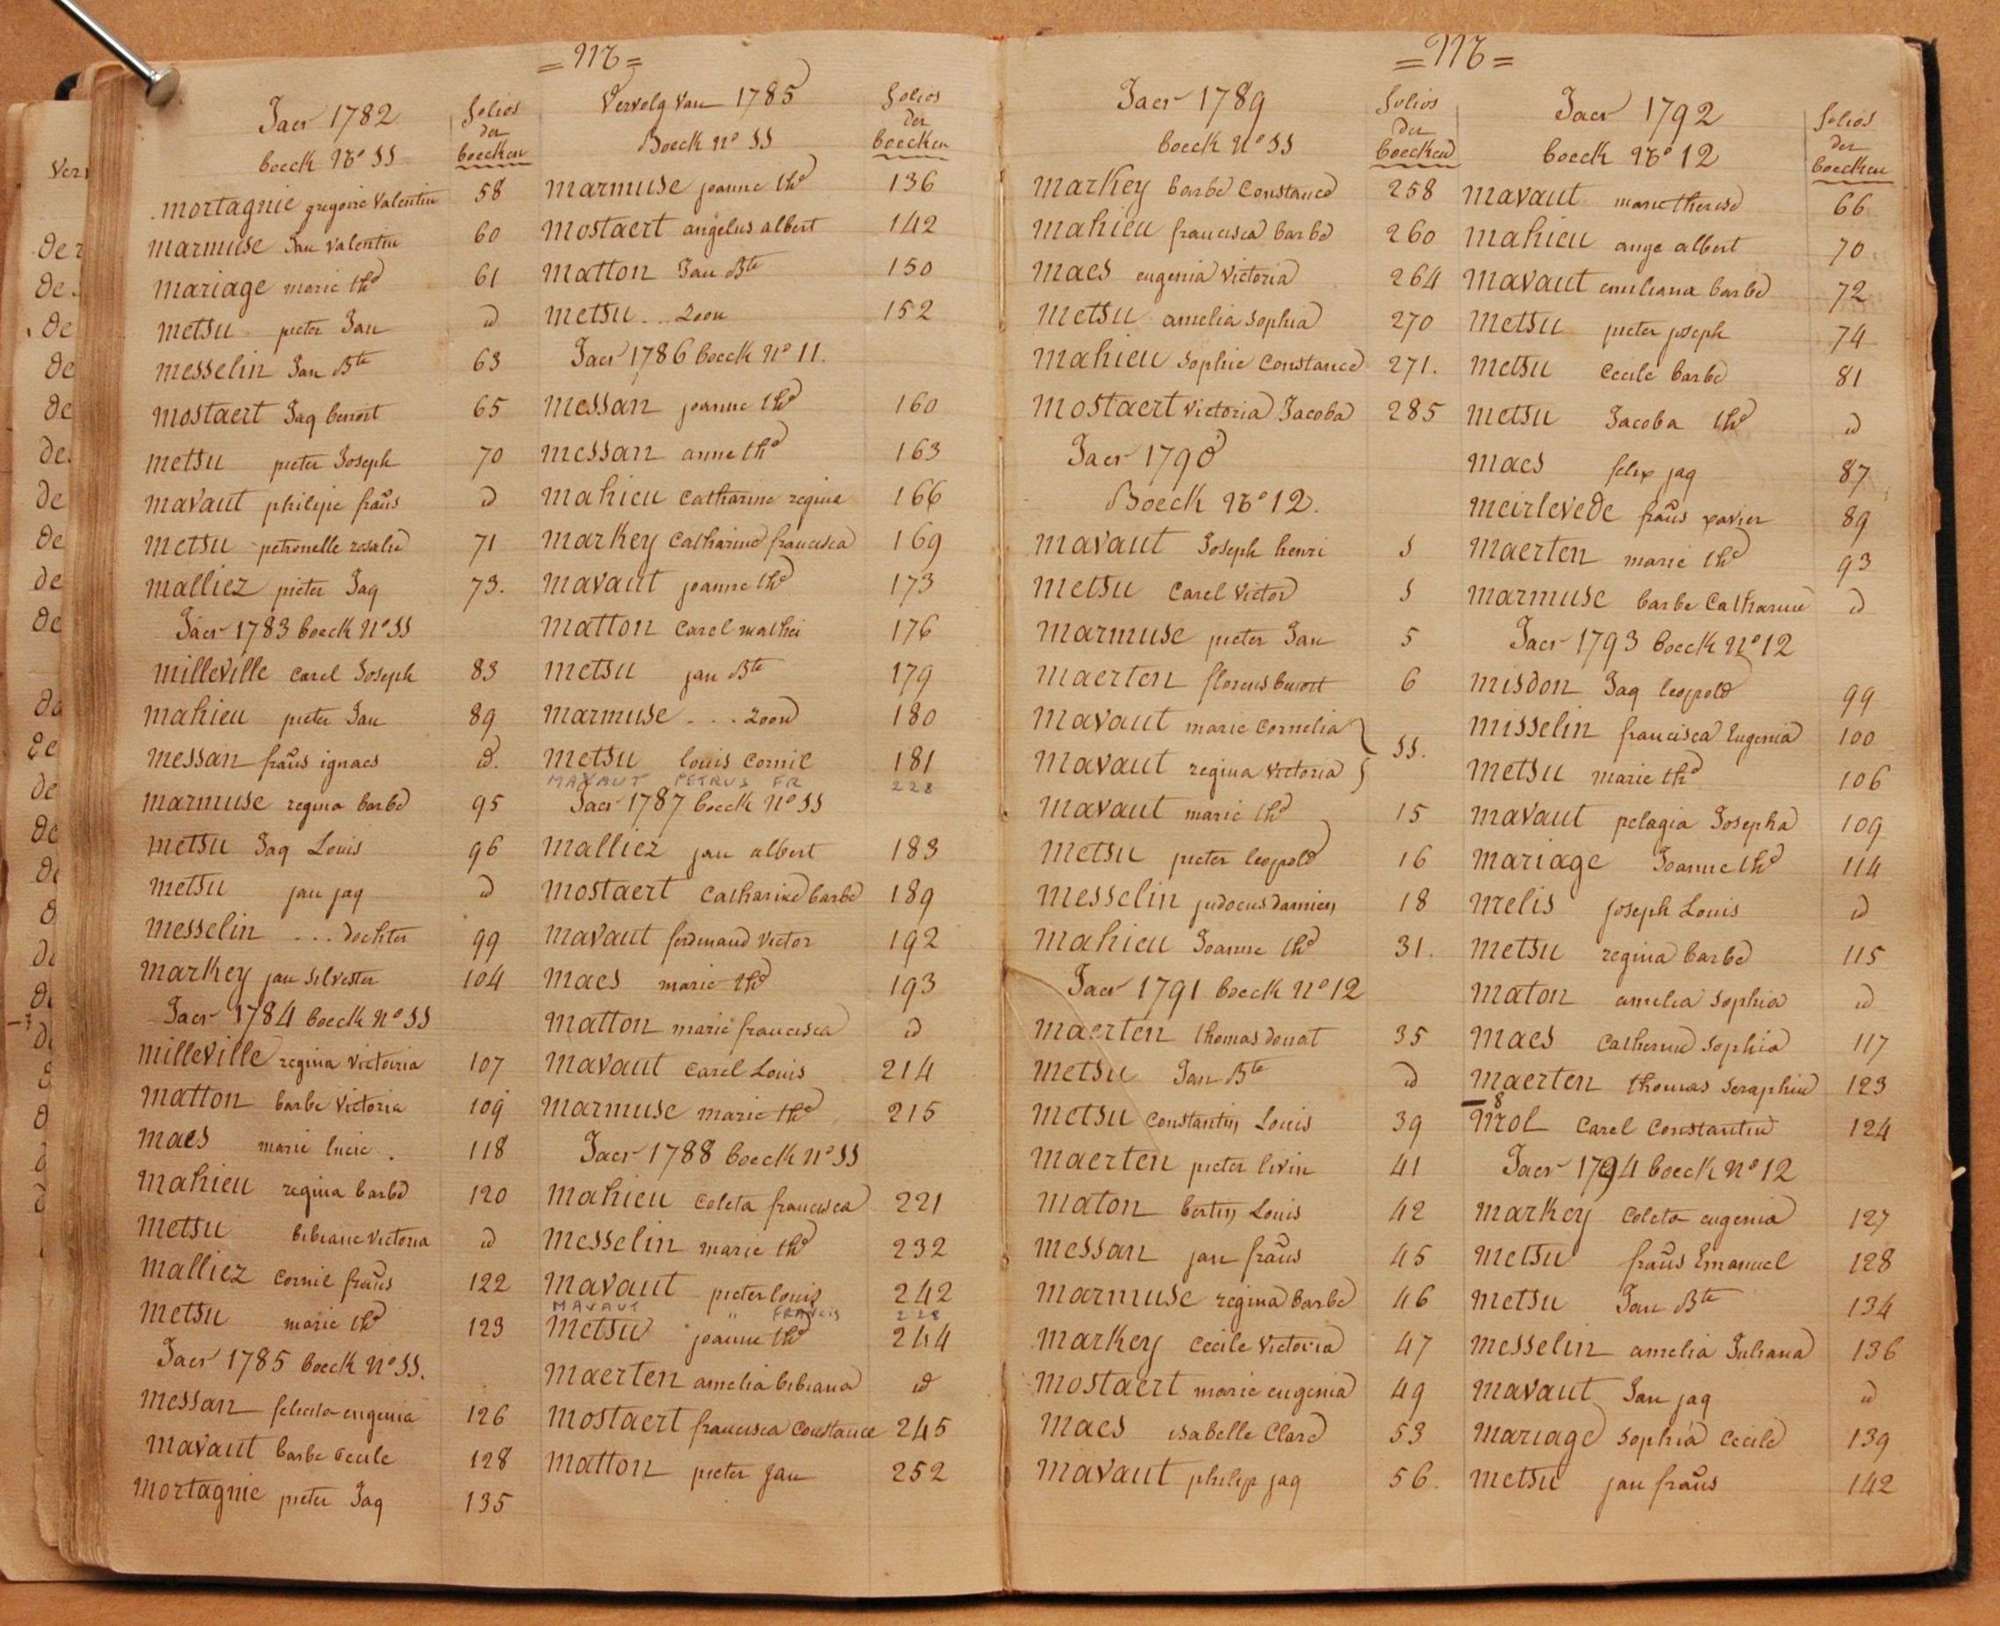 = M =
Jaer 1782
boeck No 11
folios
der
boecken
mortagnie gregoire Valentin 58
marmuse Jan Valentin 60
mariage marie the 61
metsu pieter Jan id
messelin Jan Bte 63
mostaert Jaq benoit 65
metsu pieter Joseph 70
mavaut philipe frañs id
metsu petronelle rosalie 71
malliez pieter Jaq 73.
Jaer 1783 boeck No 11
milleville Carel Joseph 83
mahieu pieter Jan 89
messan frañs ignaes id.
marmuse regina barbe 95
metsu Jaq Louis 96
metsu jan jaq id
messelin ... dochter 99
markey jan silvester 104
Jaer 1784 boeck No 11
milleville regina victoiria 107
matton barbe Victoria 109
maes marie lucie . 118
mahieu regina barbe 120
metsu bibiane victoria id
malliez Cornil frañs 122
metsu marie the 123
Jaer 1785 boeck No 11.
messan felicita eugenia 126
mavaut barbe Cecile 128
mortagnie pieter Jaq 135
Vervolg van 1785
Boeck No 11
folios
der
boecken
marmuse joanne the 136
mostaert angelus albert 142
matton Jan Bte 150
metsu .. Zoon 152
Jaer 1786 boeck No 11.
messan joanne the 160
messan anne the 163
mahieu Catharine regina 166
markey Catharine francisca 169
mavaut joanne the 173
matton Carel mathei 176
metsu jan Bte 179
marmuse ... Zoon 180
metsu louis Cornil 181
MAVAUT PETRUS FR 228
Jaer 1787 boeck No 11
malliez jan albert 183
mostaert Catharine barbe 189
mavaut ferdinand Victor 192
maes marie the 193
matton marie francisca id
mavaut Carel Louis 214
marmuse marie the 215
Jaer 1788 boeck No 11
mahieu Coleta francisca 221
messelin marie the 232
mavaut pieter louis 242
MAVAUT " FRANCIS 228
metsu joanne the 244
maerten amelia bibiana id
mostaert francisca Constance 245
matton pieter Jan 252
= M =
Jaer 1789
boeck No 11
folios
der
boecken
markey barbe Constance 258
mahieu francisca barbe 260
maes eugenia Victoria 264
metsu amelia Sophia 270
mahieu Sophie Constance 271.
mostaert Victoria Jacoba 285
Jaer 1790
Boeck No 12.
mavaut Joseph henri 1
metsu Carel Victor 1
marmuse pieter Jan 5
maerten florens benoit 6
mavaut marie Cornelia }
mavaut regina Victoria } 11.
mavaut marie the 15
metsu pieter leopold 16
messelin judocus damien 18
mahieu Joanne the 31.
Jaer 1791 boeck No 12
maerten thomas donat 35
metsu Jan Bte id
metsu Constantin Louis 39
maerten pieter livin 41
maton bertin Louis 42
messan jan frañs 45
marmuse regina barbe 46
markey Cecile Victoria 47
mostaert marie eugenia 49
maes isabelle Clare 53
mavaut philip jaq 56.
Jaer 1792
boeck No 12
folios
der
boecken
mavaut marie therese 66
mahieu ange albert 70
mavaut emiliana barbe 72
metsu pieter joseph 74
metsu Cecile barbe 81
metsu Jacoba the id
maes felix jaq 87
meirlevede frañs xavier 89
maerten marie the 93
marmuse barbe Catharine id
Jaer 1793 boeck No 12
misdon Jaq leopold 99
misselin francisca Eugenia 100
metsu marie the 106
mavaut pelagia Josepha 109
mariage Joanne the 114
melis Joseph Louis id
metsu regina barbe 115
maton amelia Sophia id
maes Catherine Sophia 117
maerten thomas Seraphin 123
mol Carel Constantin 124
Jaer 1794 boeck No 12
markey Coleta eugenia 127
metsu frañs Emanuel 128
metsu Jan Bte 134
messelin amelia Juliana 136
mavaut Jan jaq id
mariage Sophia Cecile 139
metsu jan frañs 142